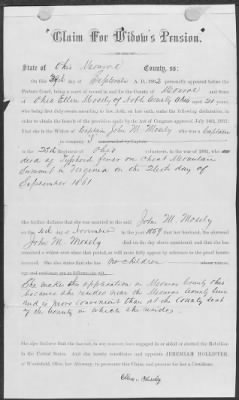 Claim For Widow's Pension.
State of Ohio Monroe County, ss:
On this 29th day of September A. D., 1862 personally appeared before the
Probate Court, being a court of record in and for the County of Monroe and State
of Ohio Ellen Mosely of Noble County Ohio aged 21 years,
who being first duly sworn according to law, doth, on her oath, make the following declaration, in
order to obtain the benefit of the provision made by the Act of Congress approved July 14th, 1862:
That she is the Widow of Captain John M. Mosely who was a Captain
in company
in the 25th Regiment of Ohio volunteers, in the war of 1861, who
died of Typhoid fever on Cheat Mountain
Summit in Virginia on the day of
September 1861
She further declares that she was married to the said John M. Mosely
on the day of November 1859 that her husband, the aforesaid
John M. Mosely died on the day above mentioned, and that she has
remained a widow ever since that period, as will more fully appear by reference to the proof hereto
annexed. She also states that she has no children
She makes this application in Monroe County Ohio
because she resides near the Monroe County line
and is more convenient than at the County Seat
of the County in which she resides.
She also declares that she has not, in any manner, been engaged in or aided or abetted the Rebellion
in the United States. And she hereby constitutes and appoints JEREMIAH HOLLISTER,
of Woodsfield, Ohio, her Attorney, to prosecute this Claim and procure for her a Certificate.
Ellen Mosely